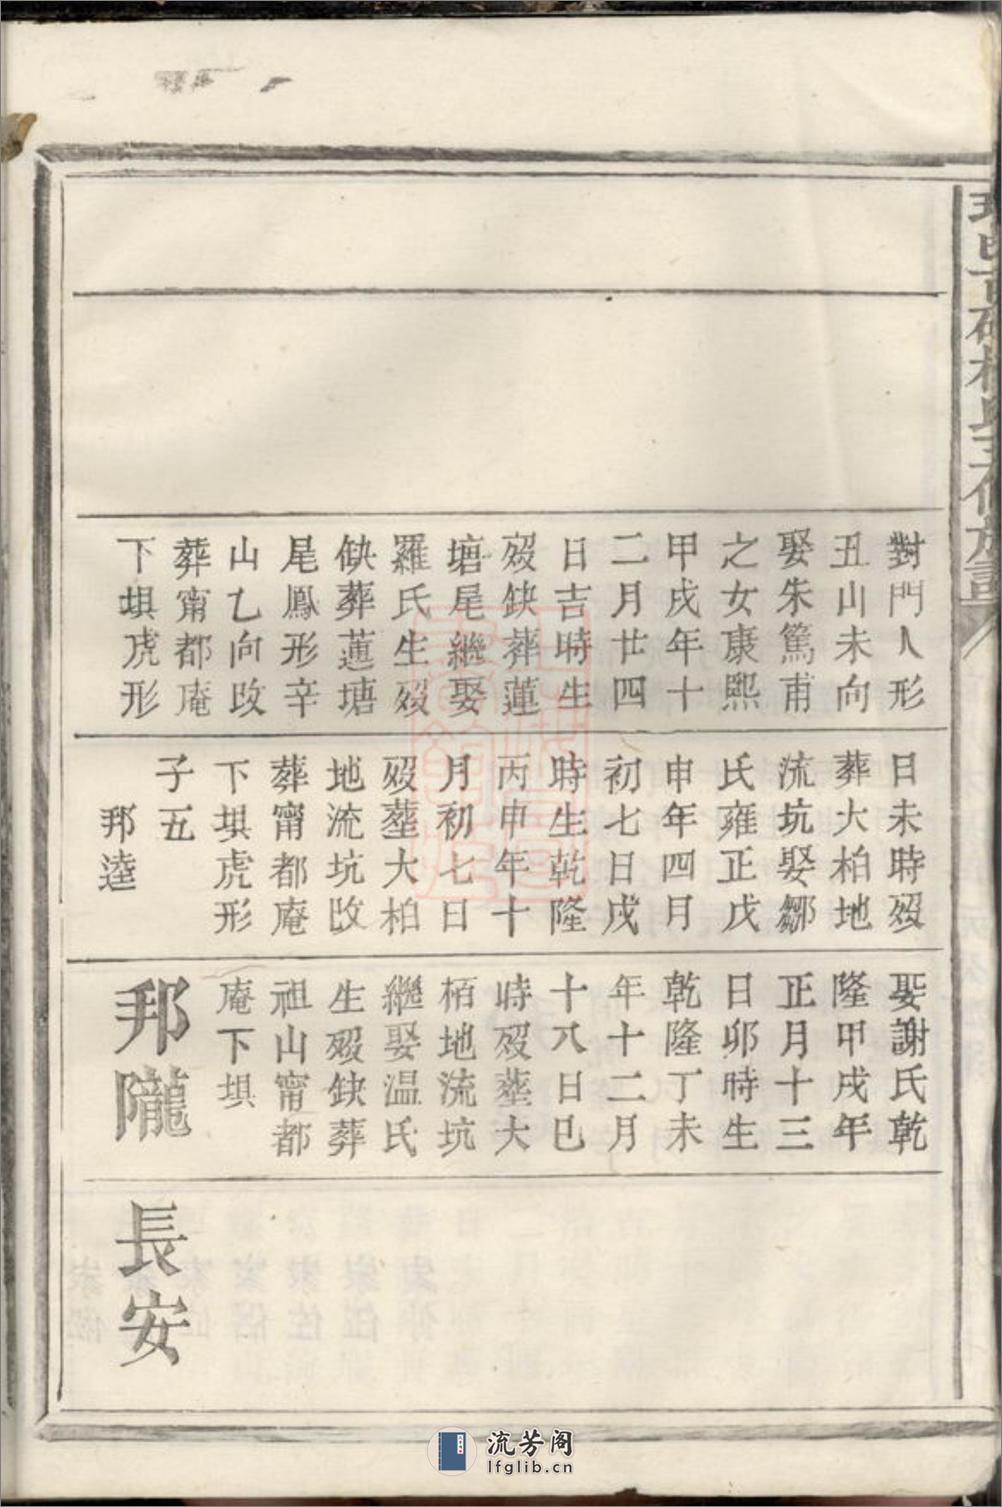 對門人形
丑山未向
娶朱篤甫
之女康熙
甲戌年十
二月廿四
日吉時生
歿缺葬蓮
塘尾繼娶
羅氏生歿
缺葬蓮塘
尾鳳形辛
山乙向改
葬甯都庵
下垻虎形
日未時歿
葬大柏地
流坑娶鄒
氏雍正戊
申年四月
初七日戌
時生乾隆
丙申年十
月初七日
歿塟大柏
地流坑改
葬甯都庵
下垻虎形
子五
邦逵
娶謝氏乾
隆甲戌年
正月十三
日卯時生
乾隆丁未
年十二月
十八日巳
時歿塟大
栢地流坑
繼娶温氏
生歿缺葬
祖山甯都
庵下垻
邦隴
長安
流芳阁
lfglib.cn